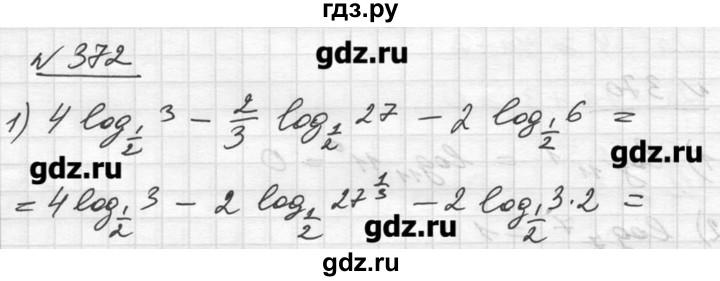 гдз.ру
№ 372 gdz.ru
1) 4 log_{1/2} 3 − 2/3 log_{1/2} 27 − 2 log_{1/2} 6 =
gdz.ru gdz.ru
= 4 log_{1/2} 3 − 2 log_{1/2} 27^{1/3} − 2 log_{1/2} 3·2 =
gdz.ru gdz.ru
gdz.ru